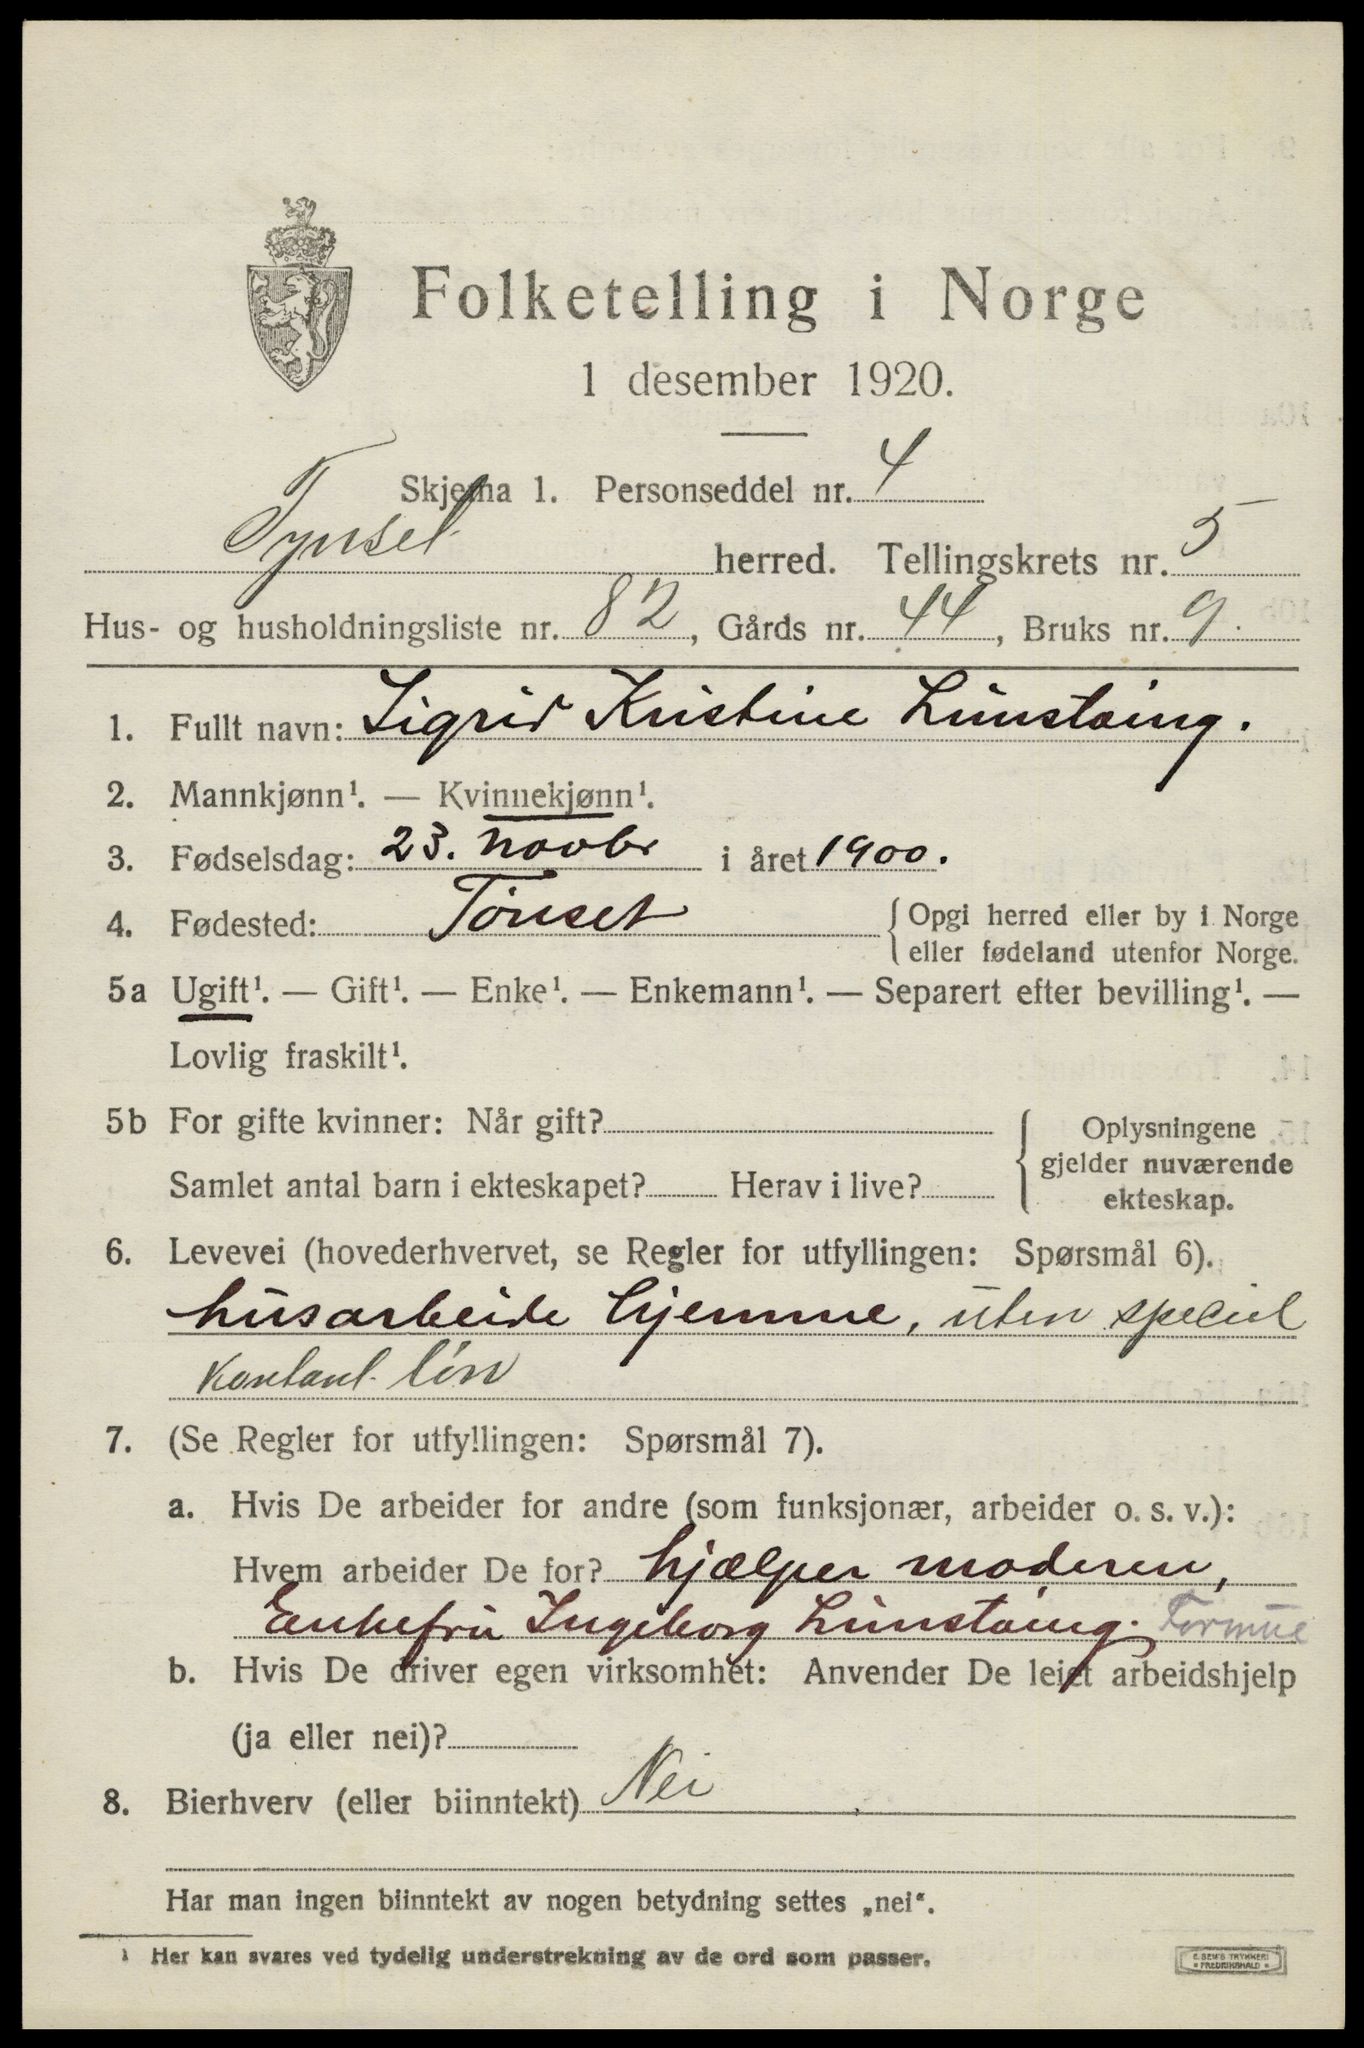 Folketelling i Norge
1 desember 1920.
Skjema 1. Personseddel nr. 4
Tynset herred. Tellingskrets nr. 5
Hus- og husholdningsliste nr. 82, Gårds nr. 44, Bruks nr. 9.
1. Fullt navn: Sigrid Kristine Lunstaing.
2. Mannkjønn¹. — Kvinnekjønn¹.
3. Fødselsdag: 23. novbr i året 1900.
4. Fødested: Tönset { Opgi herred eller by i Norge
eller fødeland utenfor Norge.
5a Ugift¹. — Gift¹. — Enke¹. — Enkemann¹. — Separert efter bevilling¹. —
Lovlig fraskilt¹.
5b For gifte kvinner: Når gift? { Oplysningene
gjelder nuværende
Samlet antal barn i ekteskapet? Herav i live? ekteskap.
6. Levevei (hovederhvervet, se Regler for utfyllingen: Spørsmål 6).
husarbeide hjemme, uten speciel
kontant lön
7. (Se Regler for utfyllingen: Spørsmål 7).
a. Hvis De arbeider for andre (som funksjonær, arbeider o. s. v.):
Hvem arbeider De for? hjælper moderen,
Enkefru Ingeborg Lunstaing. Formue
b. Hvis De driver egen virksomhet: Anvender De leiet arbeidshjelp
(ja eller nei)?
8. Bierhverv (eller biinntekt) Nei
Har man ingen biinntekt av nogen betydning settes „nei“.
¹ Her kan svares ved tydelig understrekning av de ord som passer.
E. SEM'S TRYKKERI
FREDRIKSHALD